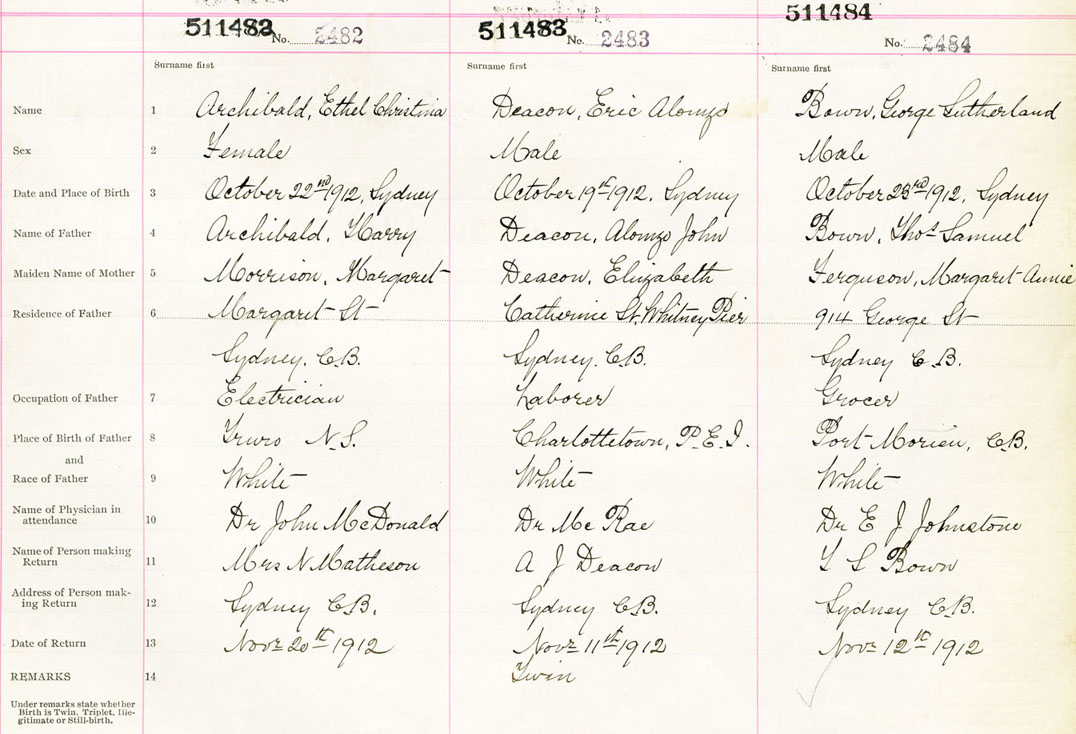 511482 No. 2482 511483 No. 2483 511484 No. 2484
Surname first Surname first Surname first
Name 1 Archibald, Ethel Christina Deacon, Eric Alonzo Bown, George Sutherland
Sex 2 Female Male Male
Date and Place of Birth 3 October 22nd 1912, Sydney October 19th 1912, Sydney October 23rd 1912, Sydney
Name of Father 4 Archibald, Harry Deacon, Alonzo John Bown, Thos Samuel
Maiden Name of Mother 5 Morrison, Margaret Deacon, Elizabeth Ferguson, Margaret Annie
Residence of Father 6 Margaret St Catherine St. Whitney Pier 914 George St
Sydney. C.B. Sydney. C.B. Sydney C.B.
Occupation of Father 7 Electrician Laborer Grocer
Place of Birth of Father 8 Truro N.S. Charlottetown, P.E.I. Port Morien, C.B.
and
Race of Father 9 White White White
Name of Physician in
attendance 10 Dr John McDonald Dr Mc Rae Dr E J Johnstone
Name of Person making
Return 11 Mrs N Matheson A J Deacon T S Bown
Address of Person mak-
ing Return 12 Sydney C.B. Sydney C.B. Sydney C.B.
Date of Return 13 Novr 20th 1912 Novr 11th 1912 Novr 12th 1912
REMARKS 14 Twin
Under remarks state whether
Birth is Twin, Triplet, Ille-
gitimate or Still-birth.